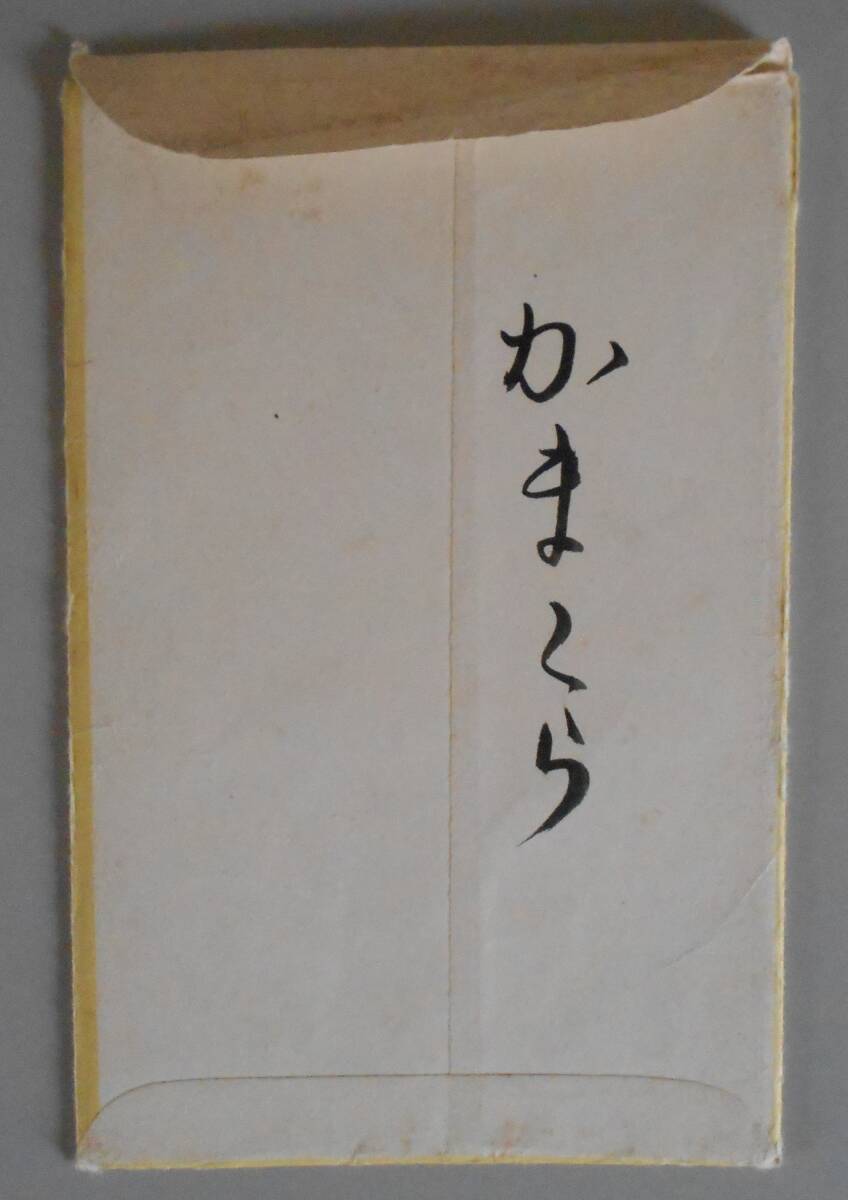 かまくら